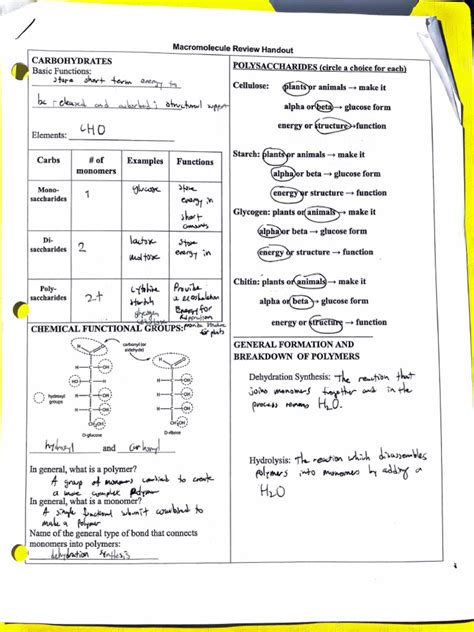 Macromolecule Review Handout
CARBOHYDRATES
Basic Functions:
store short term energy to
be released and ; structural support
Elements: CHO
Carbs # of monomers Examples Functions
Mono-saccharides 1 glucose store energy in short
Di-saccharides 2 lactose maltose store energy in
Poly-saccharides 2+ starch glycogen Provide a energy for
for plants
CHEMICAL FUNCTIONAL GROUPS:
carbonyl (or aldehyde)
H
OH
HO
hydroxyl groups
CH₂OH
D-glucose
D-ribose
hydroxyl and carbonyl
In general, what is a polymer?
A group of monomers combined to create
a more complex polymer
In general, what is a monomer?
A single functional subunit combined to
make a polymer
Name of the general type of bond that connects
monomers into polymers:
dehydration synthesis
POLYSACCHARIDES (circle a choice for each)
Cellulose: plants or animals → make it
alpha or beta → glucose form
energy or structure → function
Starch: plants or animals → make it
alpha or beta → glucose form
energy or structure → function
Glycogen: plants or animals → make it
alpha or beta → glucose form
energy or structure → function
Chitin: plants or animals → make it
alpha or beta → glucose form
energy or structure → function
GENERAL FORMATION AND
BREAKDOWN OF POLYMERS
Dehydration Synthesis: The reaction that
joins monomers together and in the
process removes H₂O.
Hydrolysis: The reaction which disassembles
polymers into monomers by adding a
H₂O